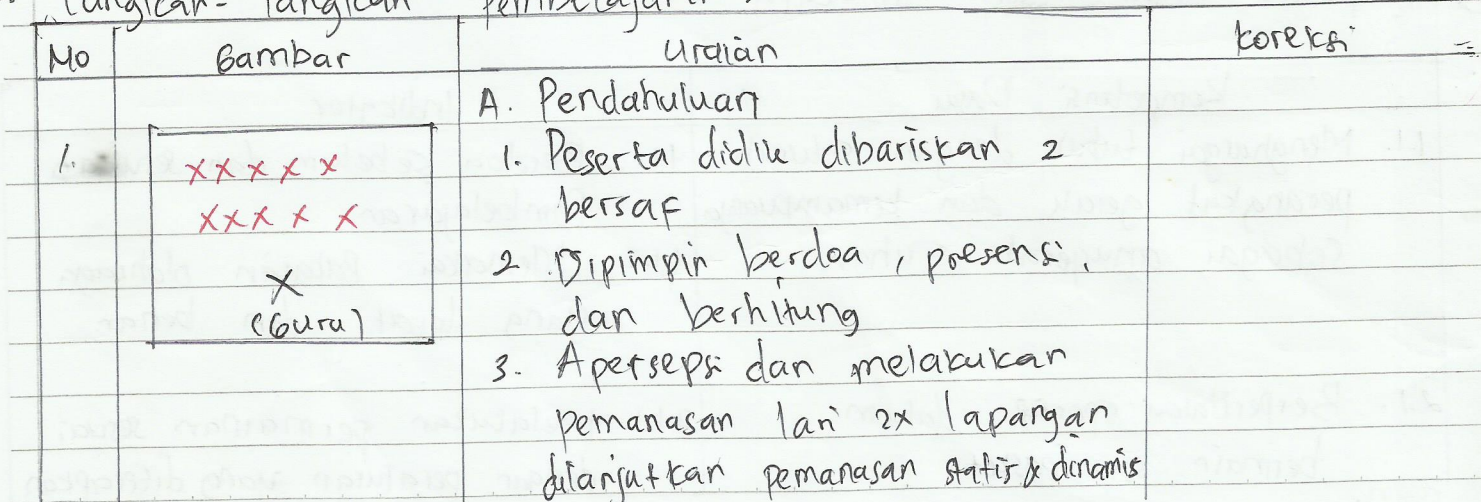 Langkah - langkah Pembelajaran
No Gambar Uraian Koreksi
A. Pendahuluan
1. x x x x x 1. Peserta didik dibariskan 2
x x x x x bersaf
x 2. Dipimpin berdoa, presensi,
(Guru) dan berhitung
3. Apersepsi dan melakukan
pemanasan lari 2x lapangan
dilanjutkan pemanasan statis & dinamis